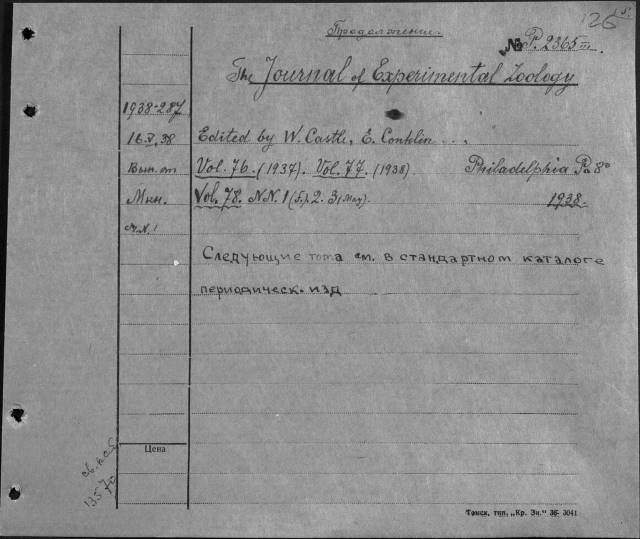 126
Продолжение.
№ P. 2365 III.
The Journal of Experimental Zoology
1938-287
16.V.38 Edited by W. Castle, E. Conklin ...
Вып. от Vol. 76. (1937). Vol. 77. (1938). Philadelphia. Pa 8°
Мин. Vol. 78. N.N. 1 2. 3 (May). 1938.
N. 1
Следующие тома см. в стандартном каталоге
периодическ. изд
Цена
1357
Томск, тип. „Кр. Зн." 36- 3041